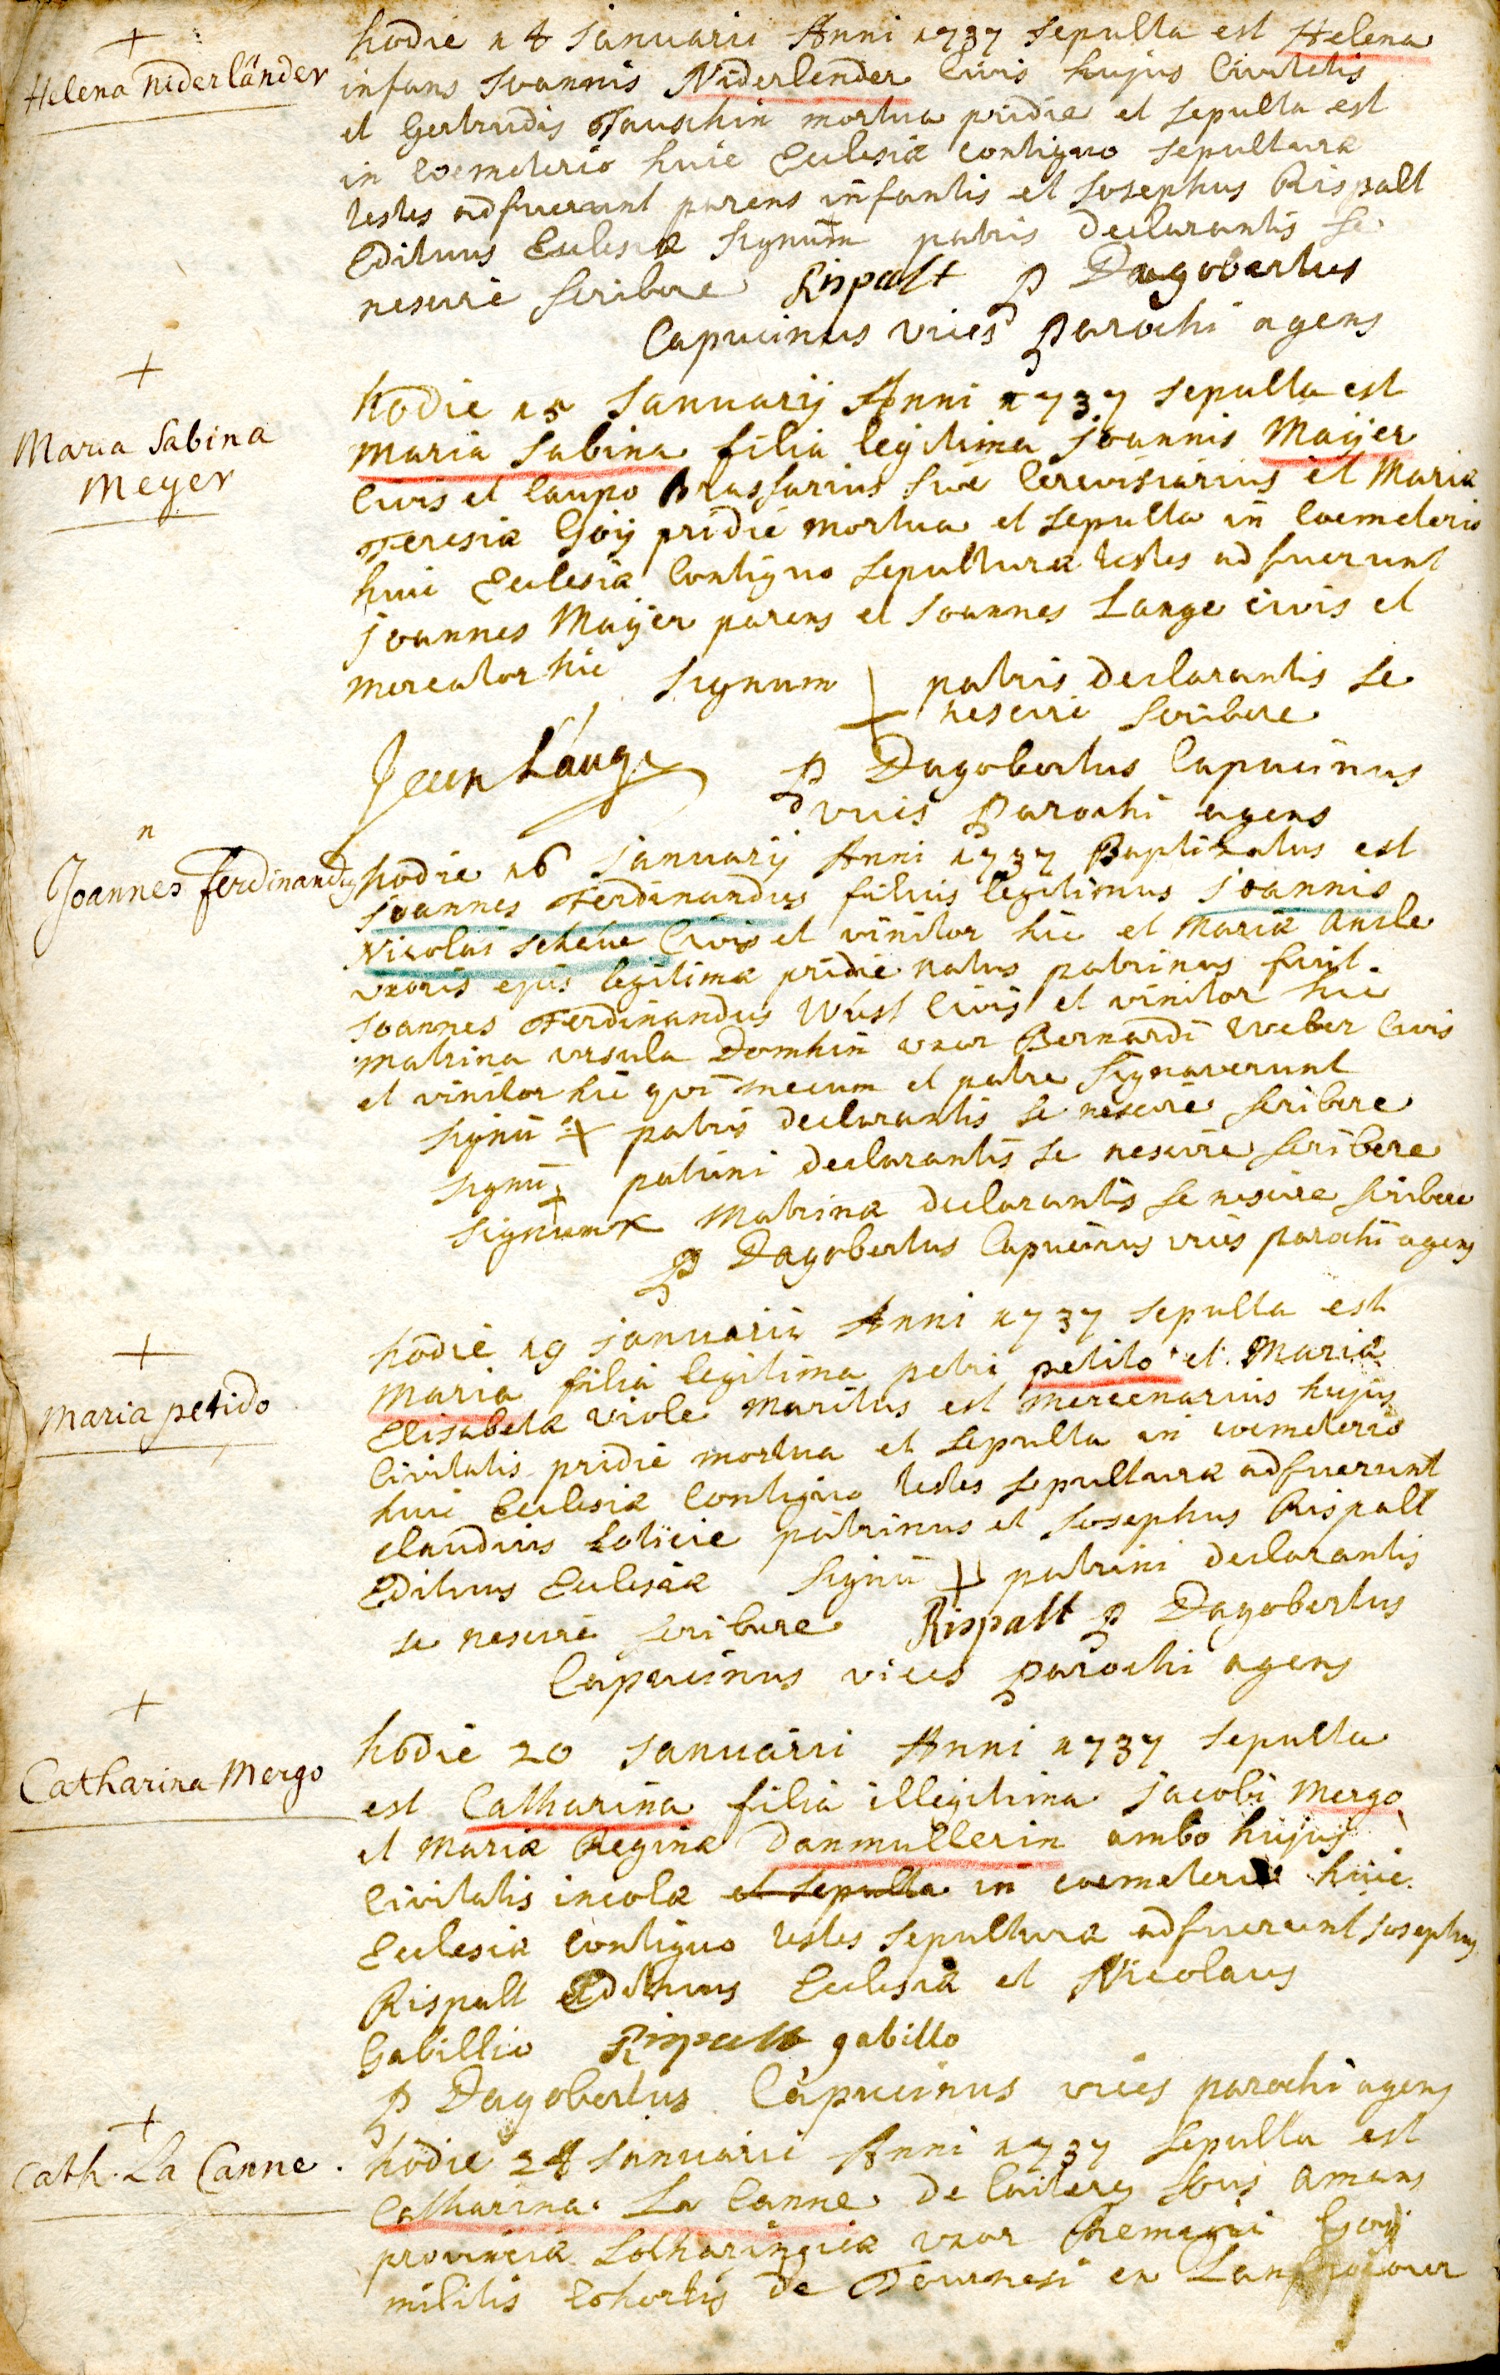 +
Helena niderländer
hodie 14 Januarii Anni 1737 sepulta est Helena
infans Joannis Niderlender Civis hujus Civitatis
et Gertrudis Tauschin mortua pridie et sepulta est
in Coemeterio huic Eclesiæ contiguo sepulturæ
testes adfuerunt parens infantis et Josephus Rispalt
Edituus Eclesiæ signum patris declarantis se
nescire scribere Rispalt P Dagobertus
Capucinus vices parochi agens
+
Maria Sabina
Meyer
hodie 15 Januarij Anni 1737 sepulta est
Maria Sabina filia legitima Joannis Mayer
Civis et caupo Brassarius sive Cerevisiarius et Mariæ
Teresiæ Goij pridie mortua et sepulta in Coemeterio
huic Eclesiæ Contiguo sepulturæ testes adfuerunt
Joannes Mayer parens et Joannes Lange civis et
mercator hic signum + patris declarantis se
nescire scribere
Jean Lange P Dagobertus Capucinus
vices Parochi agens
n
Joannes Ferdinandus
hodie 16 Januarij Anni 1737 Baptizatus est
Joannes Ferdinandus filius legitimus Joannis
Nicolai Civis et vinitor hic et Mariæ
uxoris ejus legitimæ pridie natus patrinus fuit
Joannes Ferdinandus Wust Civis et vinitor hic
matrina ursula Domhin uxor Bernardi Weber Civis
et vinitor hic qui mecum et patre signaverunt
signū + patris declarantis se nescire scribere
signū + patrini declarantis se nescire scribere
signum x Matrinæ declarantis se nescire scribere
P Dagobertus Capucinus vices parochi agens
+
Maria petido
hodie 19 januarii Anni 1737 sepulta est
Maria filia legitima petri petito et Mariæ
Elisabetæ viole Maritus est Mercenarius hujus
Civitatis pridie mortua et sepulta in coemeterio
huic Eclesiæ Contiguo testes sepulturæ adfuerunt
claudius patrinus et Josephus Rispalt
Edituus Eclesiæ signū + patrini declarantis
se nescire scribere Rispalt P Dagobertus
Capucinus vices parochi agens
+
Catharina Mergo
hodie 20 Januarii Anni 1737 sepulta
est Catharina filia illegitima Jacobi Mergo
et Mariæ Reginæ Danmullerin ambo hujus
Civitatis incolæ et sepulta in coemeterio huic
Eclesiæ contiguo testes sepulturæ adfuerunt Josephus
Rispalt Edituus Eclesiæ et Nicolaus
Gabillio Rispalt gabillo
P Dagobertus Capucinus vices parochi agens
+
Cath. La Canne.
hodie 24 Januarii Anni 1737 sepulta est
Catharina La Canne de sous Amans
provinciæ Lotharingiæ uxor Remigii
militis Cohortis de en